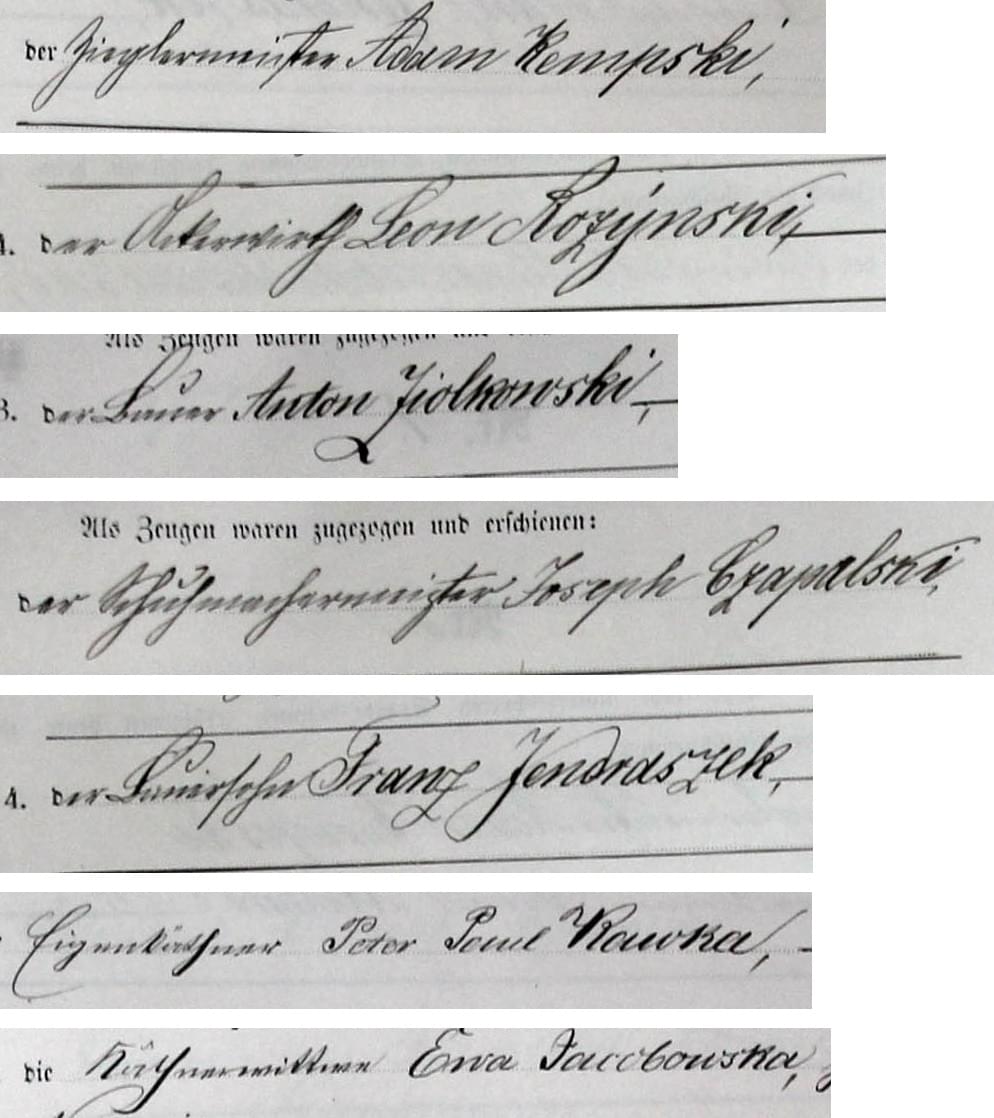 der Zieglermeister Adam Kempski,
4. der Ackerwirth Leon Rozynski,
Als Zeugen waren zugezogen und
3. der Bauer Anton Ziolkowski,
Als Zeugen waren zugezogen und erschienen:
der Schuhmachermeister Joseph Czapalski,
4. der Bauersohn Franz Jendraszek,
Eigenkäthner Peter Paul Kawka,
die Käthnerwittwe Ewa Jacobowska,